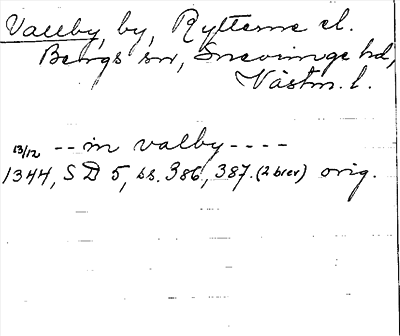 Vallby, by, Rytterne el.
Bergs sn, Snevringe hd,
Västm. l.
13/12 -- in valby ----
1344, SD 5, ss. 386, 387. (2 brev) orig.